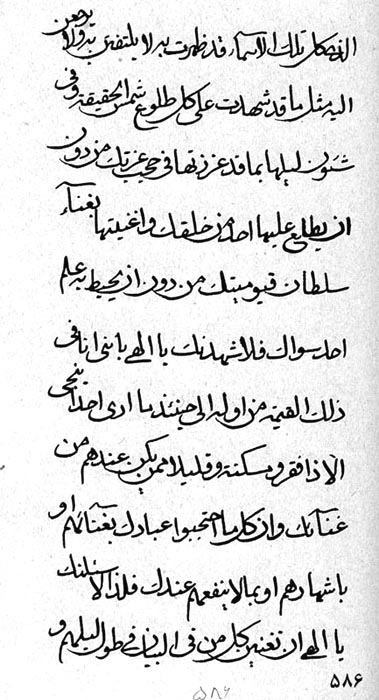 الف كل تلك الاسماء قد ظهرت به لا يلتفتن به ولا يرجعن
اليه مثل ما قد شهدت على كل طلوع شمس الحقيقة وفى
شئون ليلها بما قد عززتها فى حجب عزتك من دون
ان يطلع عليها احد من خلقك واغنيتها بغناء
سلطان قيوميتك من دون ان يحيط به علم
احد سواك فلاشهدنك يا الهى باننى انا فى
ذلك القيمة من اوله الى حينئذ ما ارى احدا
الا ذا فقر ومسكنة وقليلا ممن يكن عندهم من
غنائك وان كل ما احتجبوا عبادك بغنائهم او
باشهارهم او بما لا ينفعهم عندك فلذا لاسئلنك
يا الهى ان تغنين كل من فى البيان فى طول ليلهم و
۵۸۶
۵۸۶